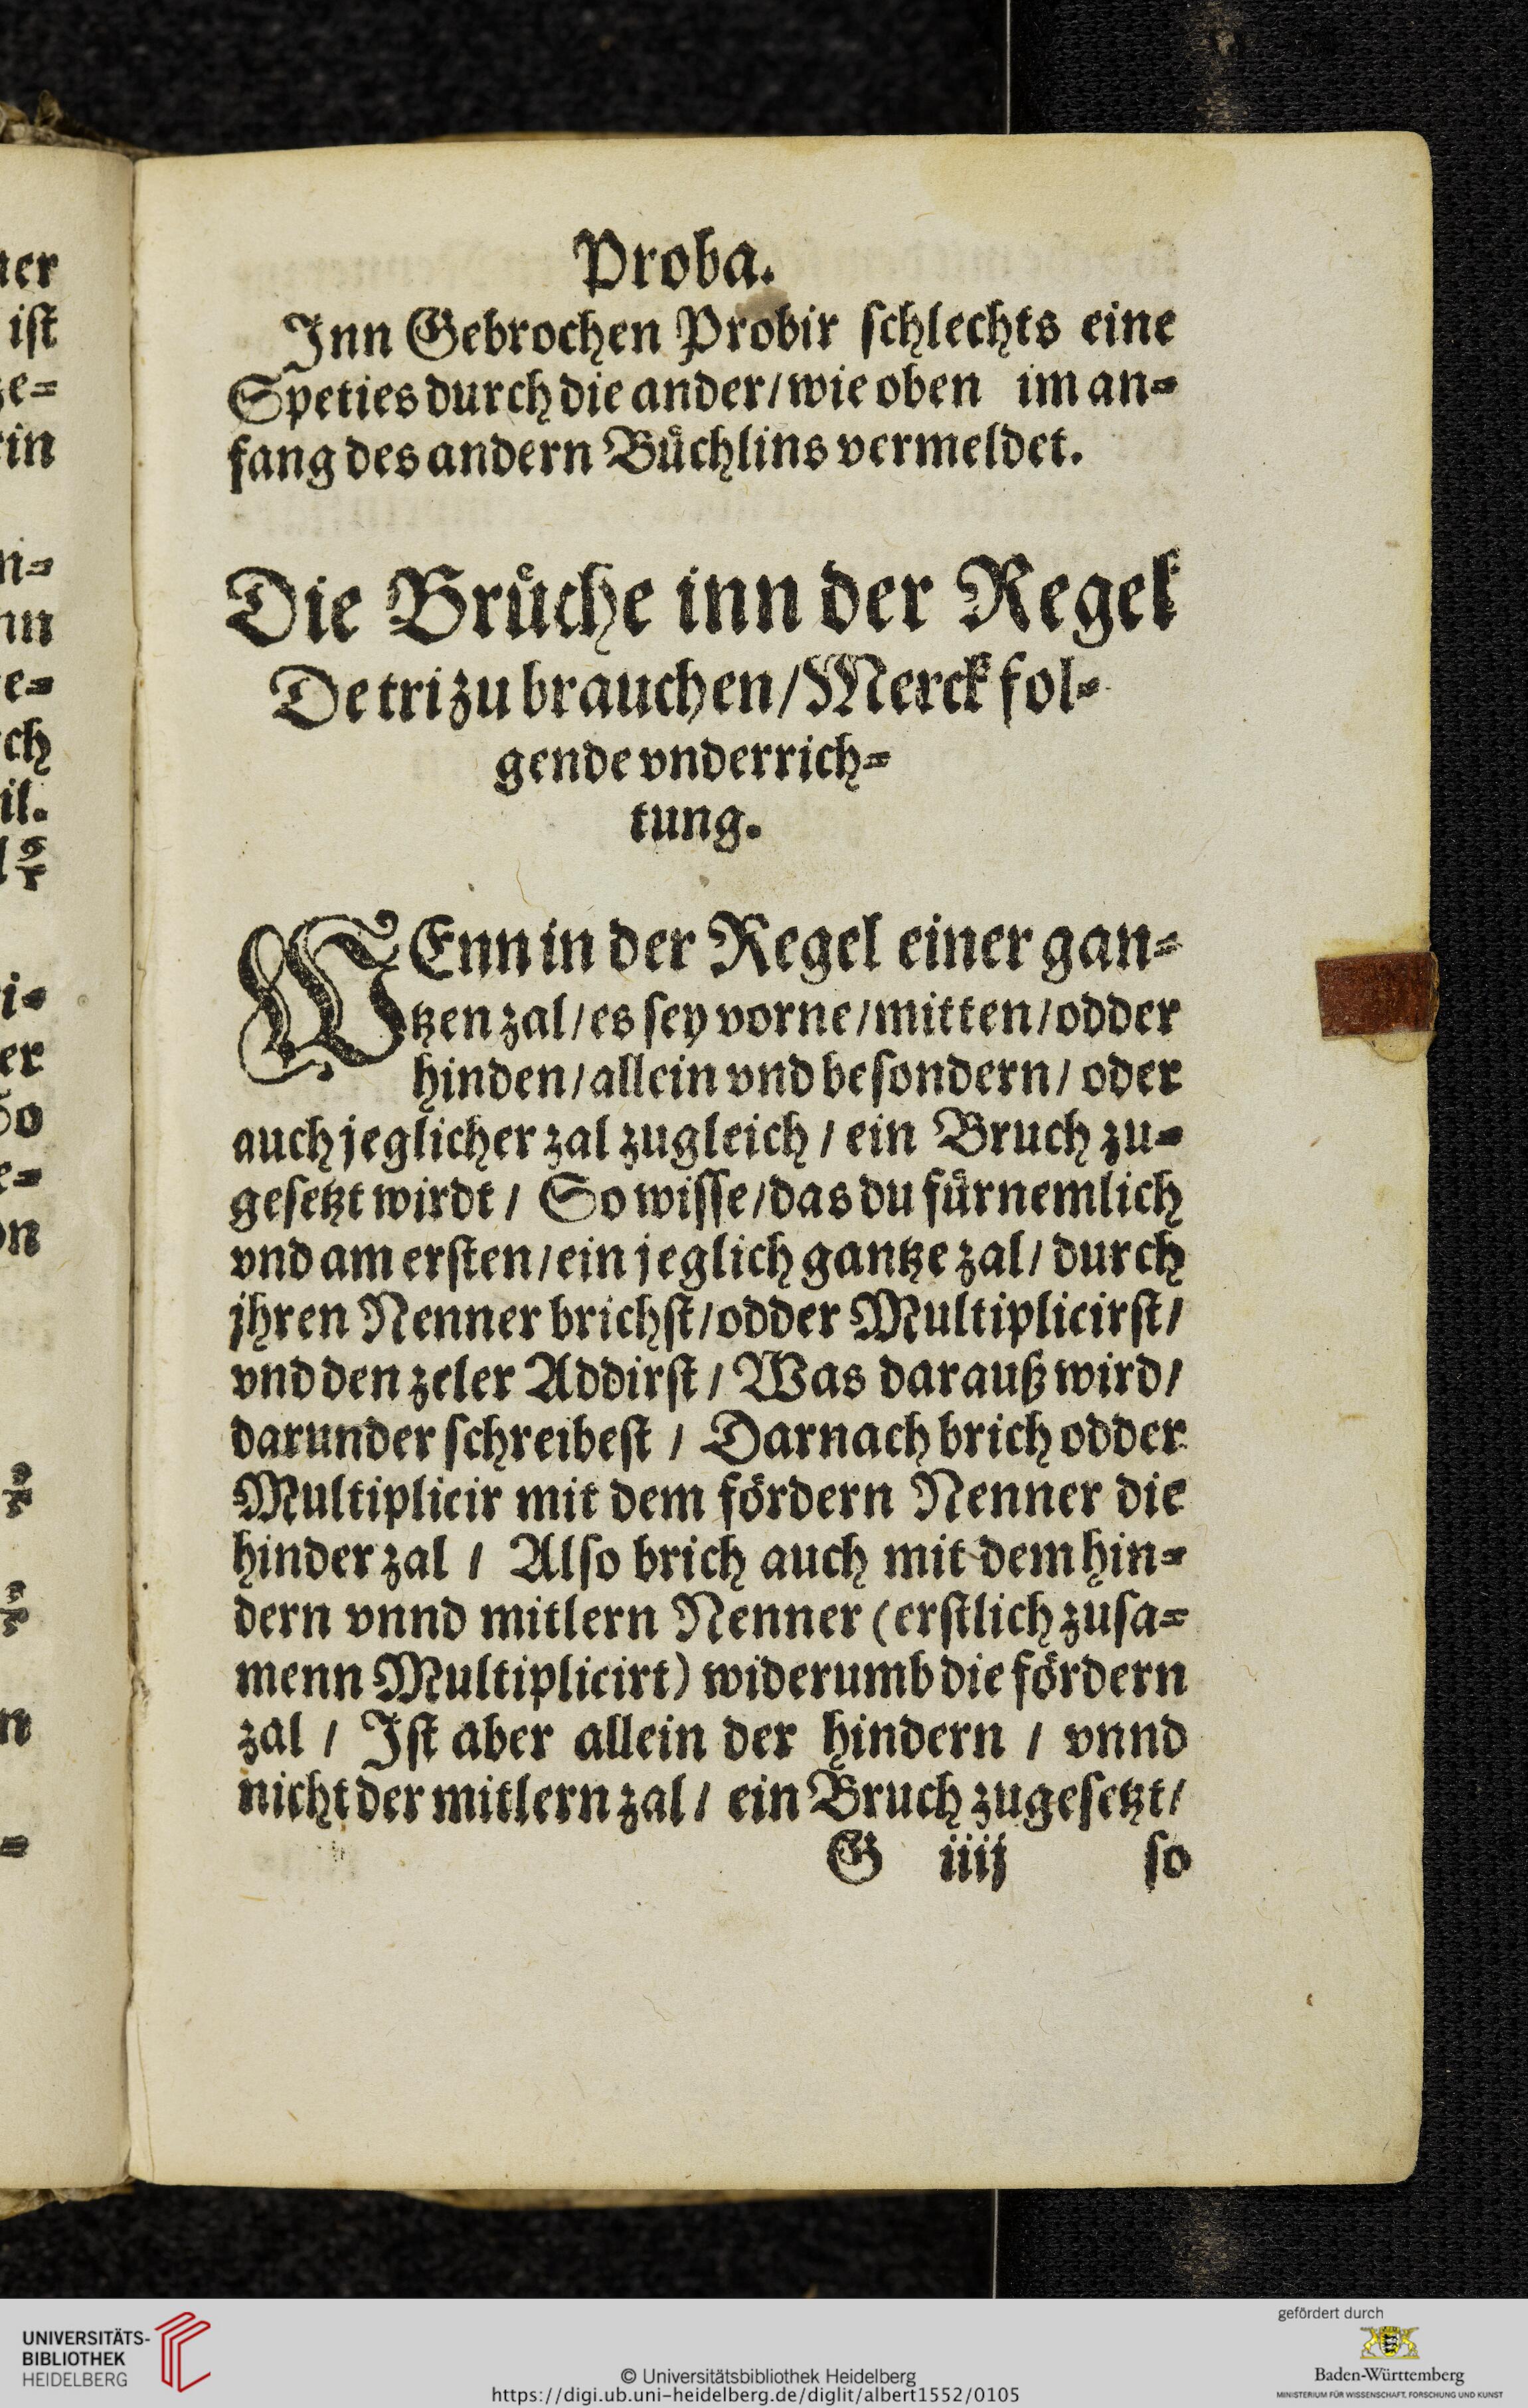 Proba.
Inn Gebrochen Probir schlechts eine
Speties durch die ander / wie oben im an-
fang des andern Bůchlins vermeldet.
Die Brůche inn der Regel
De tri zu brauchen / Merck fol-
gende vnderrich-
tung.
WEnn in der Regel einer gan-
tzen zal / es sey vorne / mitten / odder
hinden / allein vnd besondern / oder
auch jeglicher zal zugleich / ein Bruch zu-
gesetzt wirdt / So wisse / das du fůrnemlich
vnd am ersten / ein jeglich gantze zal / durch
jhren Nenner brichst / odder Multiplicirst /
vnd den zeler Addirst / Was darauß wird /
darunder schreibest / Darnach brich odder
Multiplicir mit dem fördern Nenner die
hinder zal / Also brich auch mit dem hin-
dern vnnd mitlern Nenner (erstlich zusa-
menn Multiplicirt) widerumb die fördern
zal / Ist aber allein der hindern / vnnd
nicht der mitlern zal / ein Bruch zugesetzt /
G iiij so
UNIVERSITÄTS-
BIBLIOTHEK
HEIDELBERG
© Universitätsbibliothek Heidelberg
https://digi.ub.uni-heidelberg.de/diglit/albert1552/0105
gefördert durch
Baden-Württemberg
MINISTERIUM FÜR WISSENSCHAFT, FORSCHUNG UND KUNST